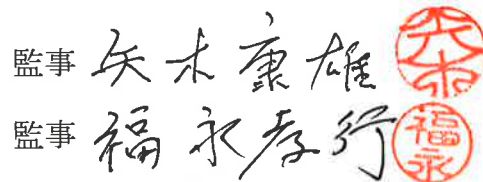 監事 矢木康雄 矢木
監事 福永孝行 福永